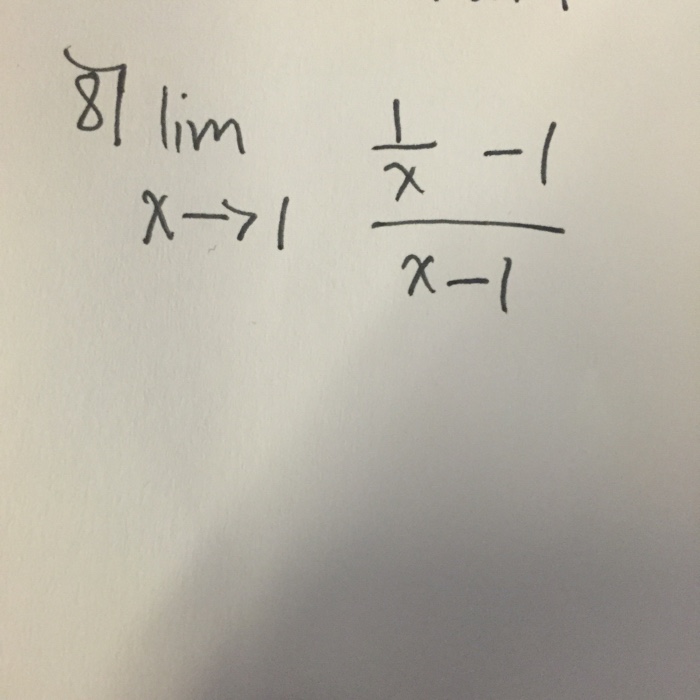 8) lim
x→1
1
x
-1
x-1